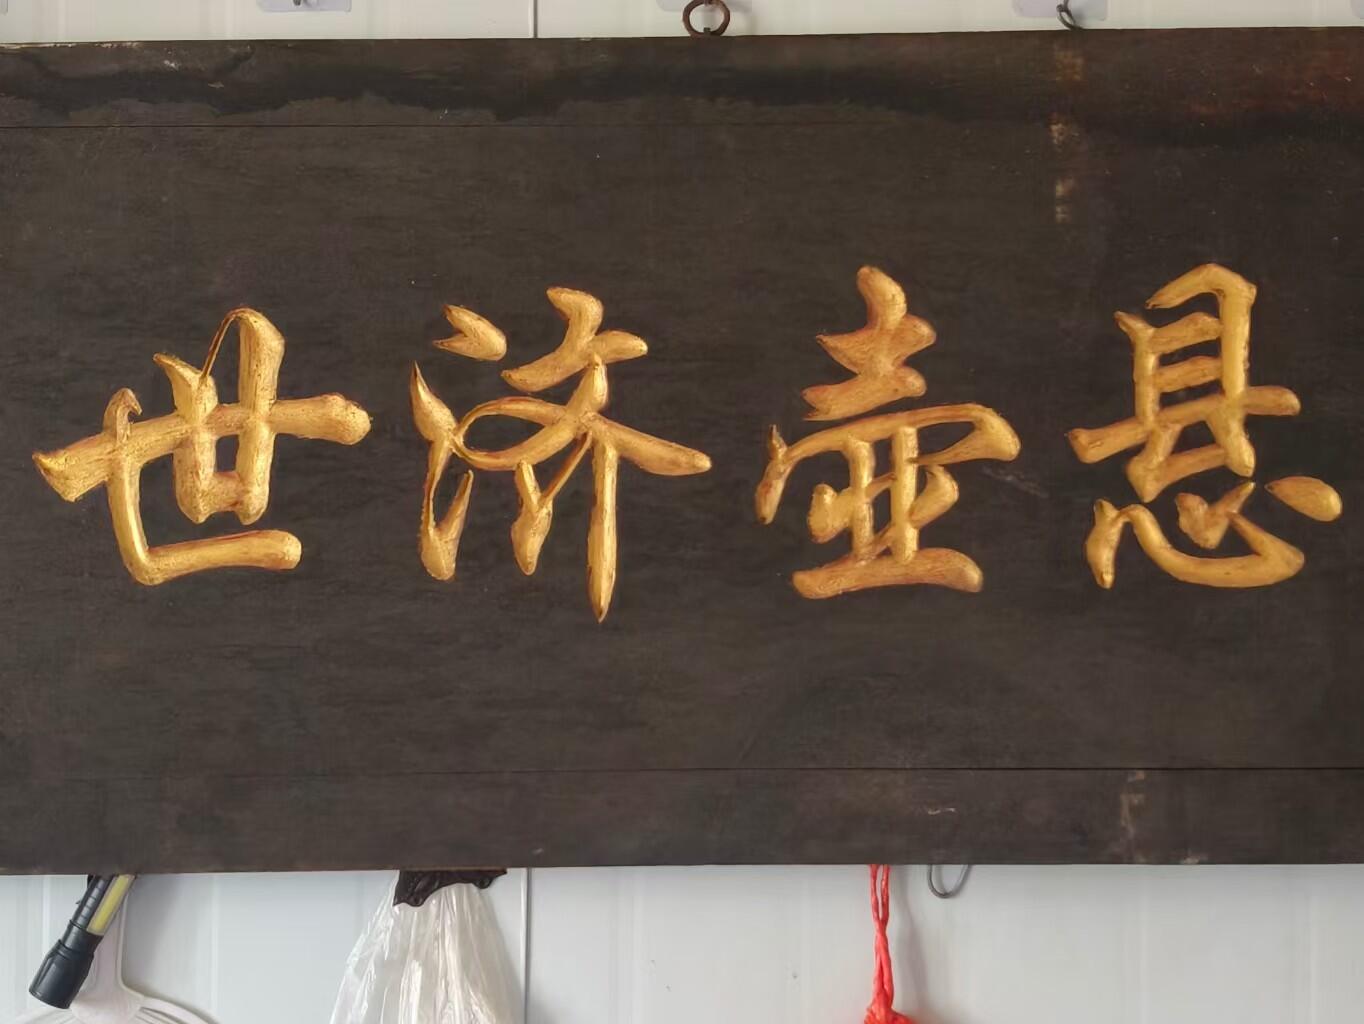 悬壶济世